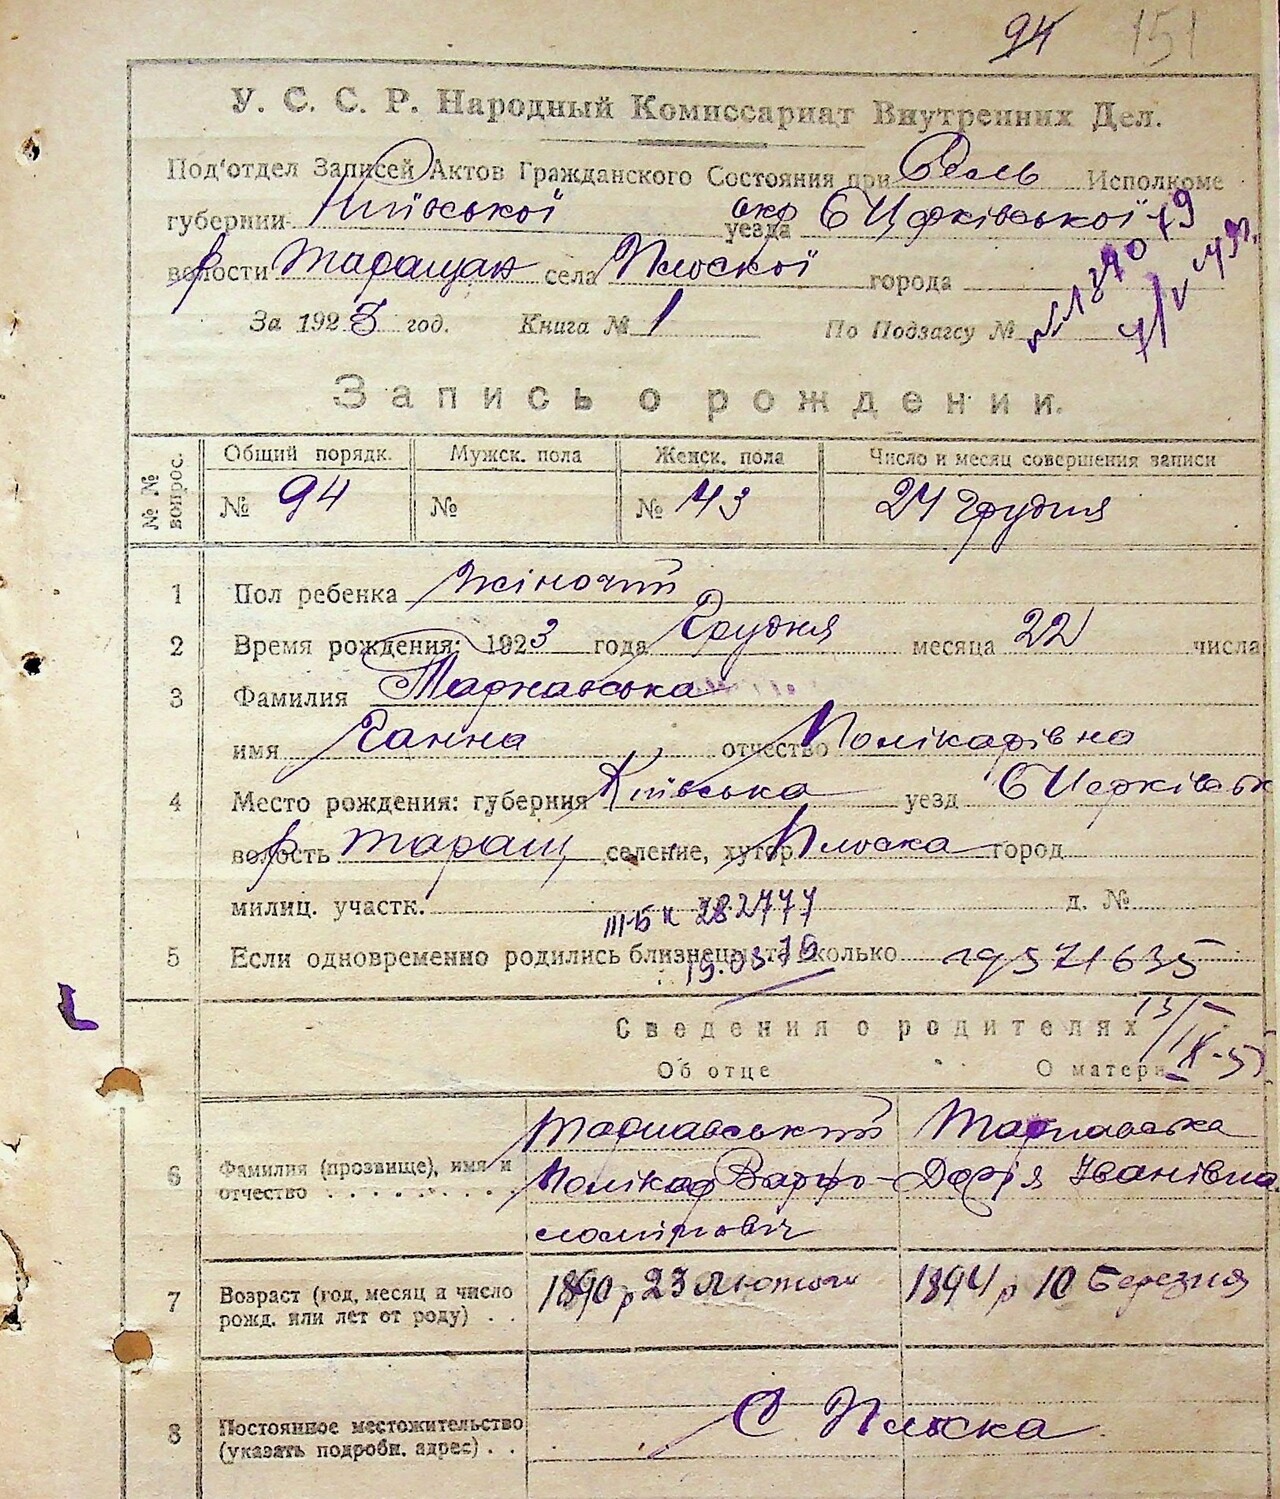 94 151
У. С. С. Р. Народный Комиссариат Внутренних Дел.
Под'отдел Записей Актов Гражданского Состояния при Сель Исполкоме
губернии Київської окр уезда Б Церківської
р волости Таращан села Плоскої города
За 1923 год. Книга № 1 По Подзагсу №
Запись о рождении.
№ № вопрос. Общий порядк. Мужск. пола Женск. пола Число и месяц совершения записи
№ 94 № № 43 24 Грудня
1 Пол ребенка Жіночий
2 Время рождения: 1923 года Грудня месяца 22 числа
3 Фамилия Тарнавська
имя Ганна отчество Полікарівна
4 Место рождения: губерния Київська уезд Б Церківськ
р волость Таращ селение, хутор Плоска город
милиц. участк. д. №
III-БК 282777
5 Если одновременно родились близнецы, то сколько
19.03.76
Сведения о родителях
Об отце О матери
6 Фамилия (прозвище), имя и отчество
Тарнавський Тарнавська
Полікар Варфо- Дарія Іванівна
ломійович
7 Возраст (год, месяц и число рожд. или лет от роду)
1890 р 23 Лютого 1894 р 10 Березня
8 Постоянное местожительство (указать подробн. адрес)
С. Плоска